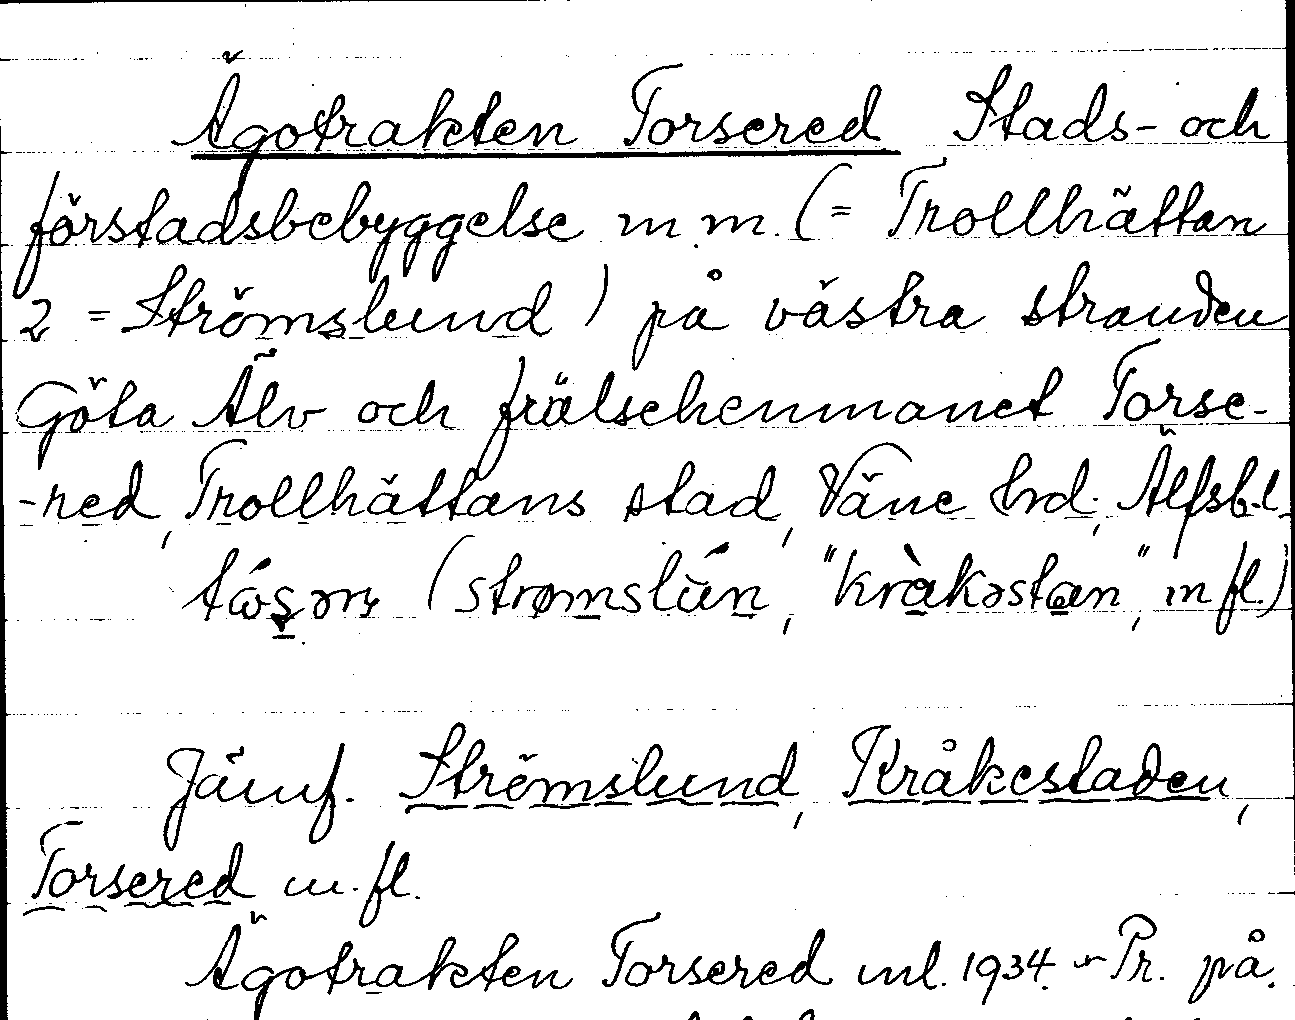 Ägotrakten Torsered Stads- och
förstadsbebyggelse m.m. (= Trollhättan
2 = Strömslund) på västra stranden
Göta Älv och frälsehemmanet Torse-
-red, Trollhättans stad, Väne hrd; Älfsb.l.
(strømslùn, "kràkəstan", m fl.)
Jämf. Strömslund, Kråkestaden,
Torsered m.fl.
Ägotrakten Torsered 1934. Pr. på.